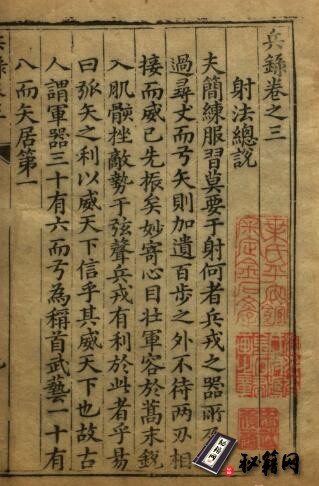 兵錄卷之三
射法總說
夫簡練服習莫要于射何者兵戎之器所
過尋丈而弓矢則加遺百步之外不待两刃相
接而威已先振矣妙寄心目壯軍容於蒿末銳
入肌髓挫敵勢于弦聲兵戎有利於此者乎易
曰弧矢之利以威天下信乎其威天下也故古
人謂軍器三十有六而弓為稱首武藝一十有
八而矢居第一
秘籍网